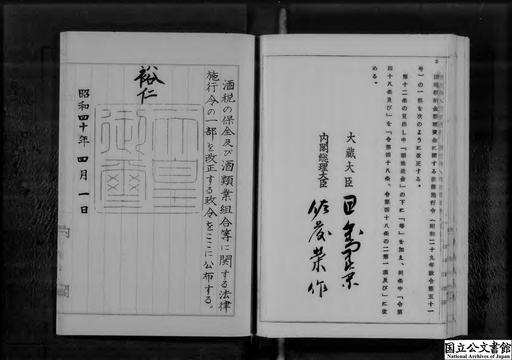 酒税の保全及び酒類業組合等に関する法律
施行令の一部を改正する政令をここに公布する。
裕仁
天皇御璽
昭和四十年四月一日
号）の一部を次のように改正する。
第十二条の見出し中「酒造組合」の下に「等」を加え、同条中「令第
四十八条及び」を「令第四十八条、令第四十八条の二第一項及び」に改
める。
大蔵大臣 田中角栄
内閣総理大臣 佐藤栄作
国立公文書館
National Archives of Japan